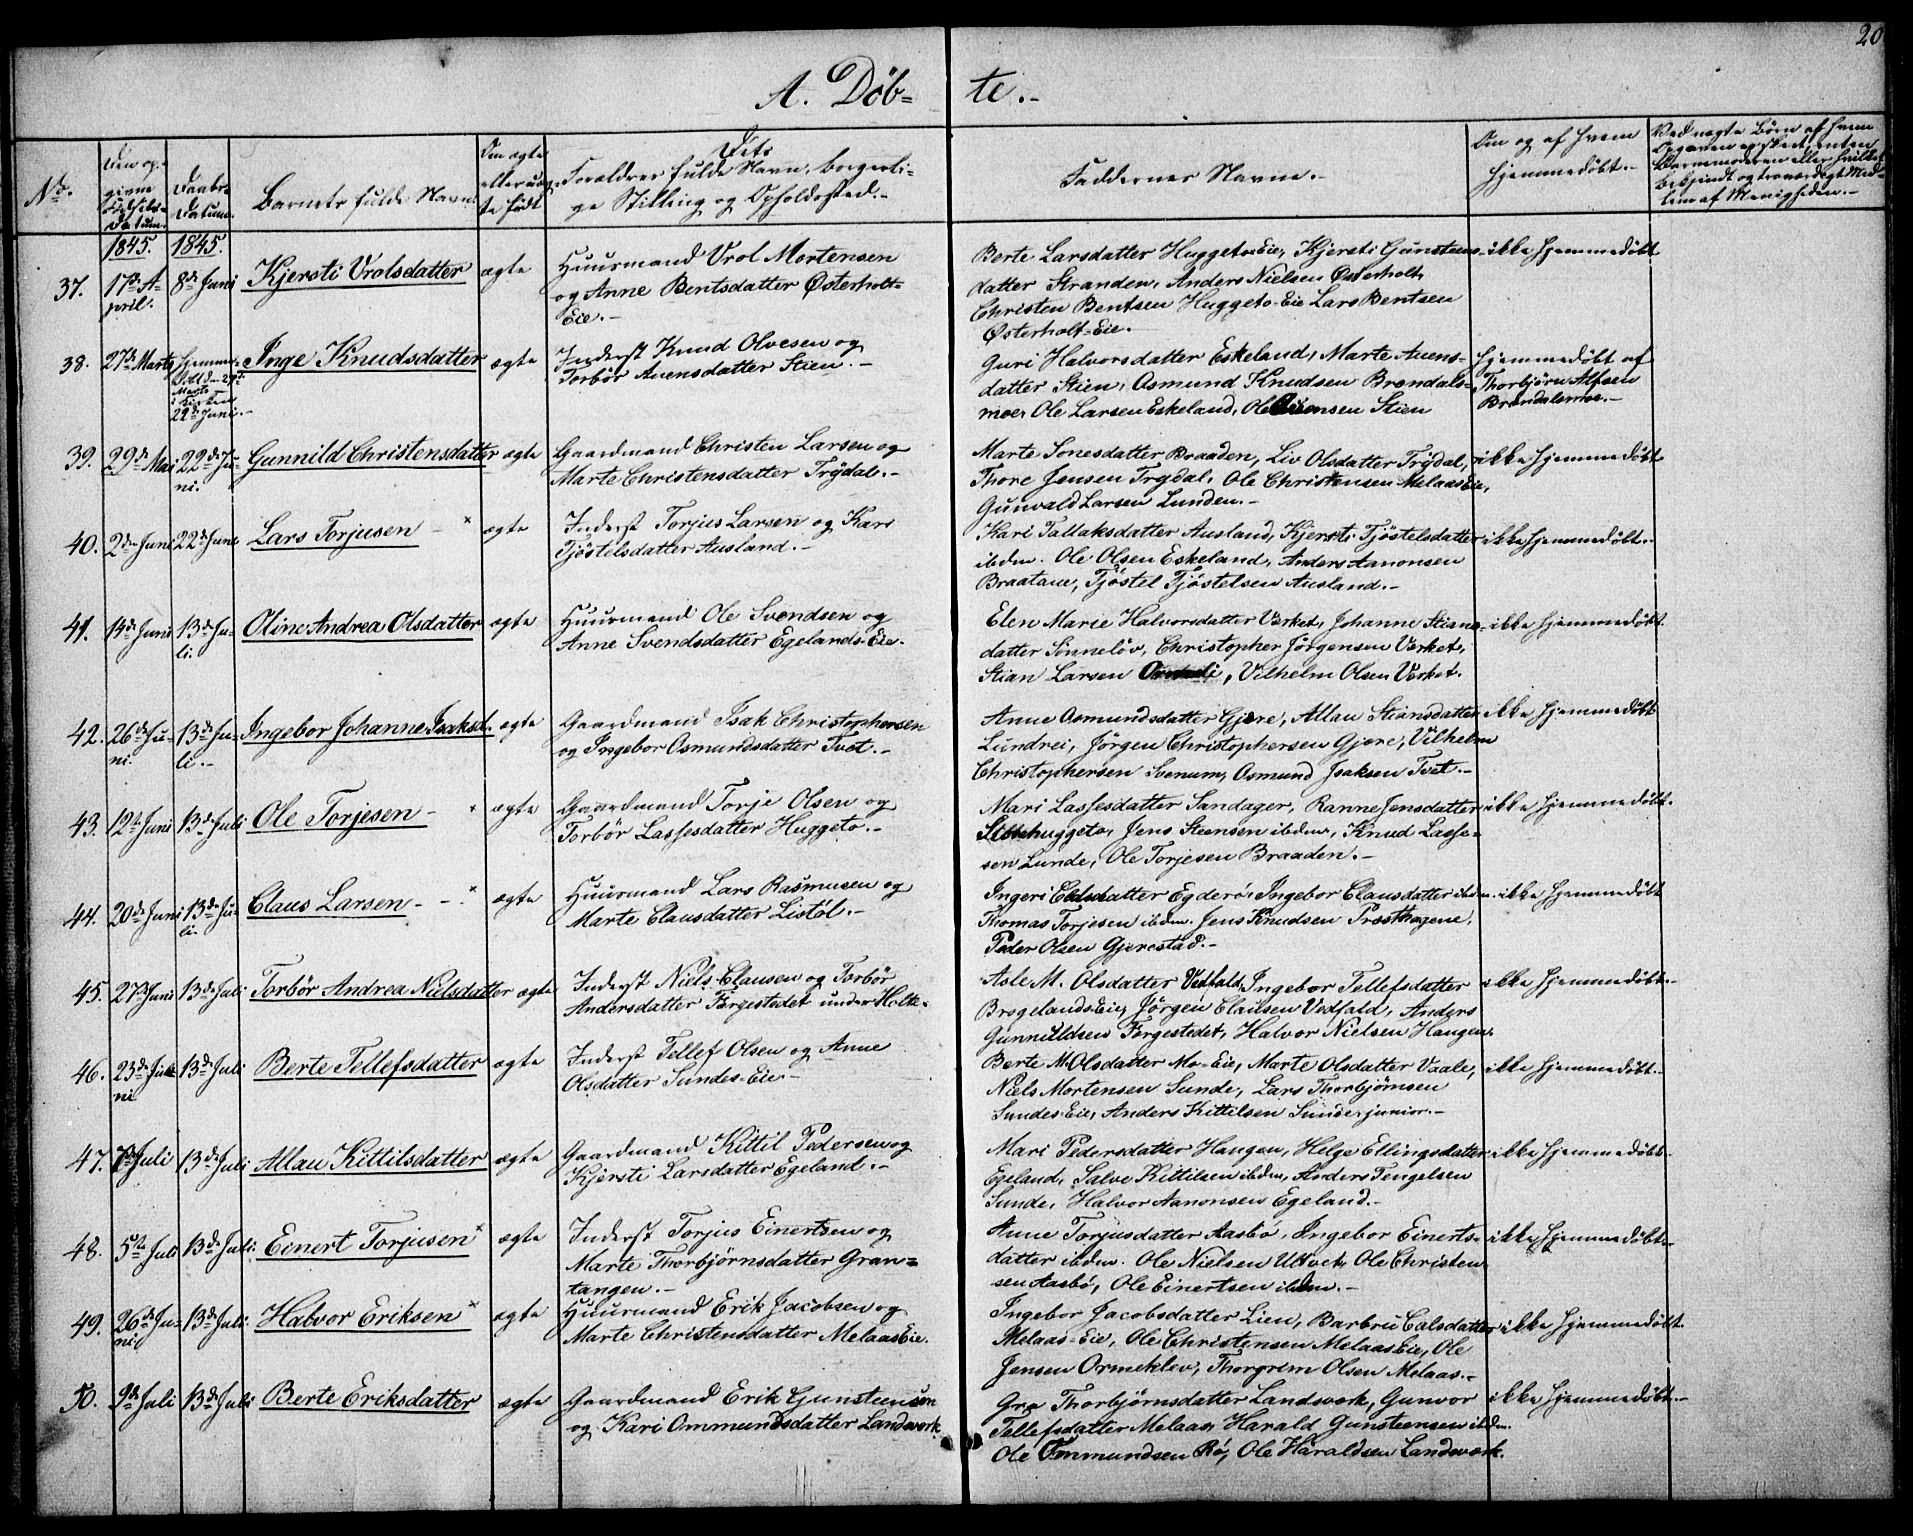 20
A. Döb= te.-
No.
Den op-
givne
Födsels-
Datum.
Daabs-
Datum.
Barnets fulde Navn.
Om ægte
eller uæg-
te födt
Dets
Forældres fulde Navn, borgerli-
ge Stilling og Opholdssted.-
Faddernes Navne.-
Om og af hvem
hjemmedöbt.-
Ved uægte Börn af hvem
Opgaven er skeet, enten
Barnemoderen eller hvilket
bekjendt og troværdigt Med-
lem af Menigheden.-
1845. 1845.
37. 17de A-
pril. 8de Juni Kjersti Vrolsdatter ægte Huusmand Vrol Mortensen
og Anne Bentsdatter Østerholt-
Eie.-
Berte Larsdatter Huggeto-Eie, Kjersti Gunsteens-
datter Stranden, Anders Nielsen Østerholt,
Christen Bentsen Huggeto-Eie Lars Bentsen
Østerholt-Eie.
ikke hjemmedöbt
38. 27de Marts Hjemme-
döbt den 29de
Marts
i Kirken
22de Juni.- Inge Knudsdatter ægte Inderst Knud Olvesen og
Torbör Auensdatter Stien.-
Guri Halvorsdatter Eskeland, Marte Auens-
datter Stien, Osmund Knudsen Brændals-
moe, Ole Larsen Eskeland, Ole Auensen Stien
Hjemmedöbt af
Thorbjörn Alfsen
Brændalsmoe.-
39. 29de Mai 22de Ju-
ni. Gunnild Christensdatter ægte Gaardmand Christen Larsen og
Marte Christensdatter Trydal.-
Marte Sonesdatter Braaden, Liv Olsdatter Trydal,
Thore Jensen Trydal, Ole Christensen Melaas Eie,
Gunvald Larsen Lunden.-
ikke hjemmedöbt
40. 2den Juni 22de Juni Lars Torjusen - × ægte Inderst Torjus Larsen og Kari
Tjöstelsdatter Ausland.-
Kari Tallaksdatter Ausland, Kjersti Tjöstelsdatter
ibdm. Ole Olsen Eskeland, Anders Aanonsen
Braatane, Tjöstel Tjöstelsen Ausland.-
ikke hjemmedöbt.-
41. 14de Juni 13de Ju-
li. Oline Andrea Olsdatter ægte Huusmand Ole Svendsen og
Anne Svendsdatter Egelands-Eie.
Elen Marie Halvorsdatter Verket, Johanne Stians-
datter Sönnelöv, Christopher Jörgensen Verket,
Stian Larsen, Vilhelm Olsen Verket.
ikke hjemmedöbt
42. 26de Ju-
ni. 13de Ju-
li.- Ingebor Johanne Isaksd. ægte Gaardmand Isak Christophersen
og Ingebor Osmundsdatter Tvet.-
Anne Osmundsdatter Gjære, Allau Stiansdatter
Lundrei, Jörgen Christophersen Gjære, Vilhelm
Christophersen Svenum, Osmund Isaksen Tvet.-
ikke hjemmedöbt
43. 12te Juni 13de Juli Ole Torjesen - × ægte Gaardmand Torje Olsen og
Torbör Lassesdatter Huggeto.-
Mari Lassesdatter Sandager, Ranne Jensdatter
Huggeto, Jens Steensen ibdm, Knud Lasse-
sen Lunde, Ole Torjesen Braaden.-
ikke hjemmedöbt.
44. 20de Juni 13de Ju-
li. Claus Larsen - - × ægte Huusmand Lars Rasmusen og
Marte Clausdatter Listöl.-
Ingeri Clausdatter Egderö, Ingebor Clausdatter ibdm.
Thomas Torjesen ibdm. Jens Knudsen Præsthagene,
Peder Olsen Gjerestad.-
ikke hjemmedöbt
45. 27de Juni 13de Juli Torbör Andrea Nielsdatter ægte Inderst Niels Clausen og Torbör
Andersdatter Færgestedet under Holte.
Asle M. Olsdatter Vedfald, Ingebor Tellefsdatter
Brogelands-Eie, Jörgen Clausen Vedfald, Anders
Gunnildsen Færgestedet, Halvor Nielsen Haugen.
ikke hjemmedöbt.-
46. 23de Ju-
ni 13de Juli Berte Tellefsdatter ægte Inderst Tellef Olsen og Anne
Olsdatter Sundes-Eie.-
Berte M. Olsdatter Mo-Eie, Marte Olsdatter Vaale,
Niels Mortensen Sunde, Lars Thorbjörnsen
Sundes-Eie, Anders Kittilsen Sunde, junior.-
ikke hjemmedöbt.-
47. 7de Juli 13de Juli Allau Kittilsdatter ægte Gaardmand Kittil Pedersen og
Kjersti Larsdatter Egeland.-
Mari Pedersdatter Haugen, Helge Ellingsdatter
Egeland, Salve Kittilsen ibdm, Anders Tengelsen
Sunde, Halvor Aanonsen Egeland.-
ikke hjemmedöbt.
48. 5te Juli 13de Juli. Einert Torjusen × ægte Inderst Torjus Einertsen og
Marte Thorbjørnsdatter Gran=
tangen.-
Anne Torjusdatter Aasbö, Ingebor Einerts-
datter ibdm. Ole Nielsen Ultvet, Ole Christen
sen Aasbö, Ole Einertsen ibdm.-
ikke hjemmedöbt.-
49. 26de Ju-
ni 13de Juli. Halvor Eriksen × ægte Huusmand Erik Jacobsen og
Marte Christensdatter Melaas Eie.
Ingebor Jacobsdatter Lien, Barbru Calsdatter
Melaas-Eie, Ole Christensen Melaas Eie, Ole
Jensen Ormeklev, Thorgrim Olsen Melaas.-
ikke hjemmedöbt.
50. 9de Juli 13de Juli Berte Eriksdatter ægte Gaardmand Erik Gunsteensen
og Kari Ommundsdatter Landsverk.
Gro Thorbjörnsdatter Landsverk, Gunvor
Tellefsdatter Melaas, Harald Gunsteensen ibdm.
Ole Ommundsen Rö, Ole Haraldsen Landsverk.
ikke hjemmedöbt.-